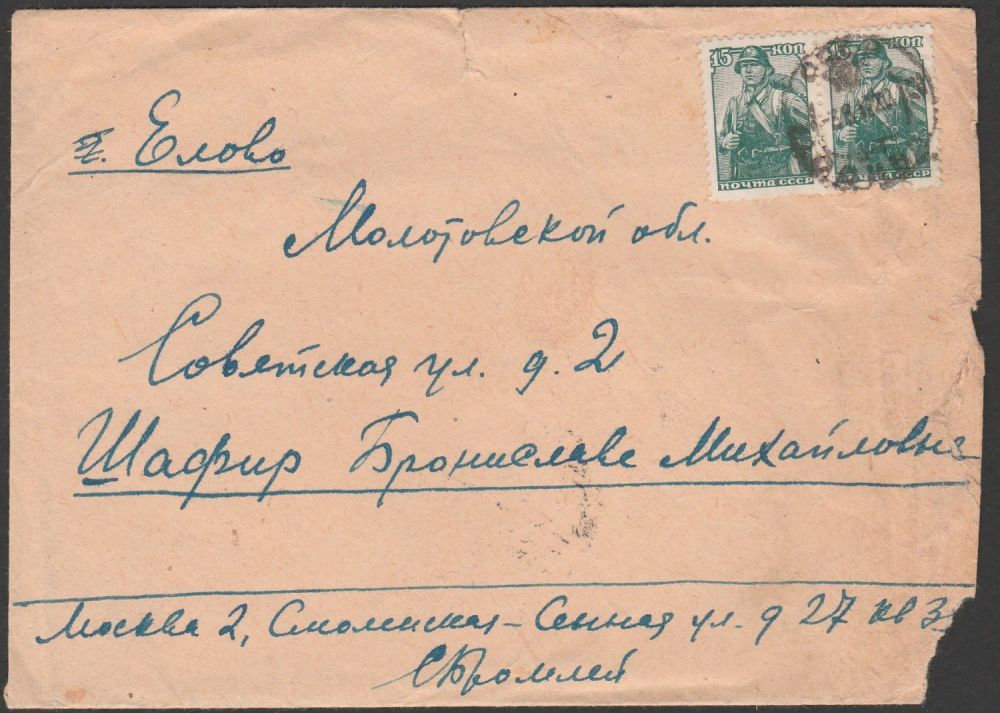 15 КОП 15 КОП
ПОЧТА СССР ПОЧТА СССР
с. Елово
Молотовской обл.
Советская ул. д. 2
Шафир Брониславе Михайловне
Москва 2, Смоленская-Сенная ул. д 27 кв 3
С Бромлей